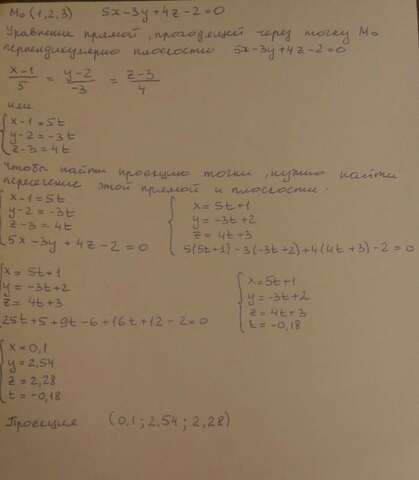 M₀ (1,2,3) 5x-3y+4z-2=0
Уравнение прямой, проходящей через точку M₀
перпендикулярно плоскости 5x-3y+4z-2=0
x-1/5 = y-2/-3 = z-3/4
или
x-1=5t
y-2=-3t
z-3=4t
Чтобы найти проекцию точки, нужно найти
пересечение этой прямой и плоскости.
x-1=5t
y-2=-3t
z-3=4t
5x-3y+4z-2=0
x=5t+1
y=-3t+2
z=4t+3
5(5t+1)-3(-3t+2)+4(4t+3)-2=0
x=5t+1
y=-3t+2
z=4t+3
25t+5+9t-6+16t+12-2=0
x=5t+1
y=-3t+2
z=4t+3
t=-0,18
x=0,1
y=2,54
z=2,28
t=-0,18
Проекция (0,1; 2,54; 2,28)